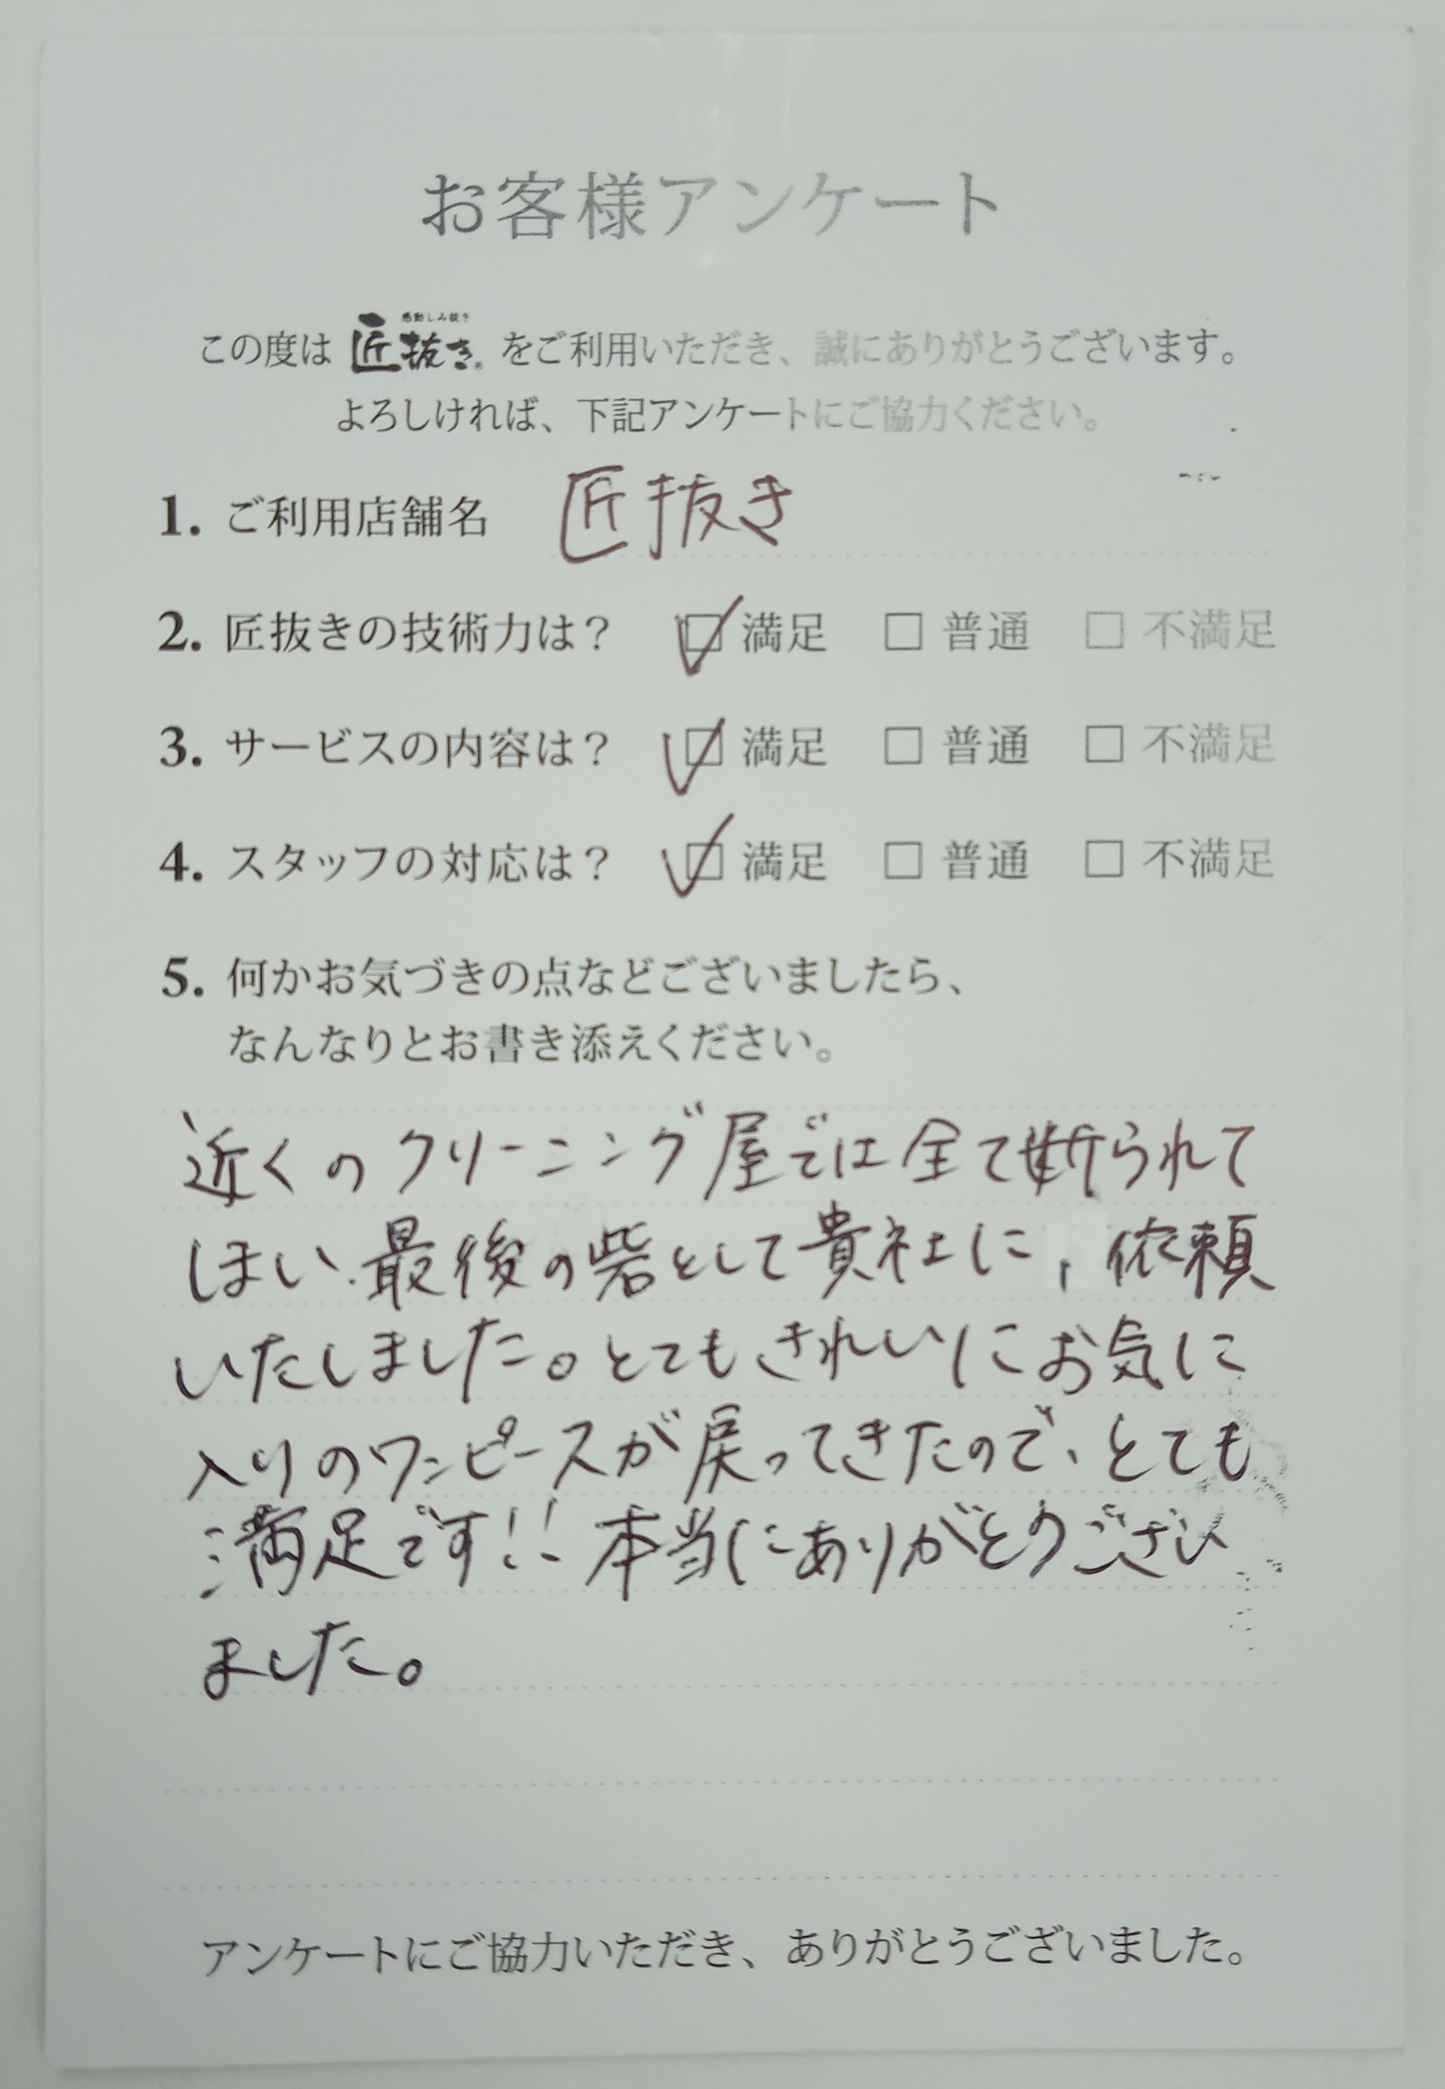 お客様アンケート
感動しみ抜き
この度は 匠抜き® をご利用いただき、誠にありがとうございます。
よろしければ、下記アンケートにご協力ください。
1. ご利用店舗名 匠抜き
2. 匠抜きの技術力は? ☑ 満足 □ 普通 □ 不満足
3. サービスの内容は? ☑ 満足 □ 普通 □ 不満足
4. スタッフの対応は? ☑ 満足 □ 普通 □ 不満足
5. 何かお気づきの点などございましたら、
なんなりとお書き添えください。
近くのクリーニング屋では全て断られて
しまい、最後の砦として貴社に、依頼
いたしました。とてもきれいにお気に
入りのワンピースが戻ってきたので、とても
満足です!! 本当にありがとうござい
ました。
アンケートにご協力いただき、ありがとうございました。